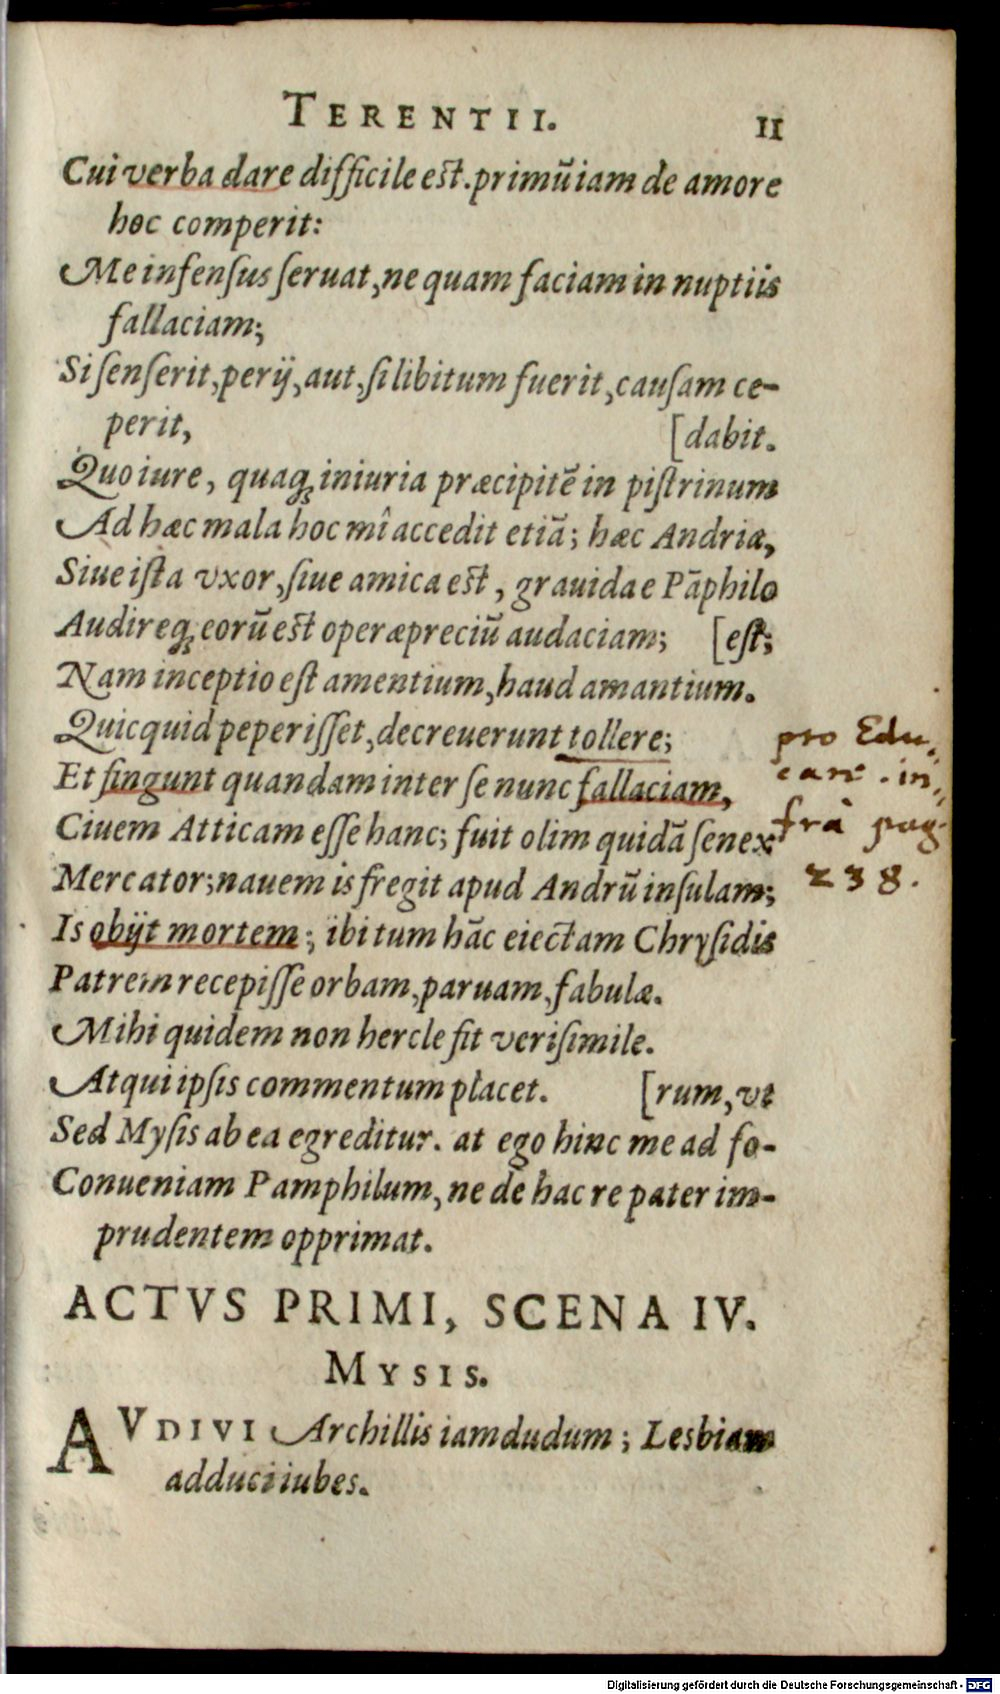 TERENTII. 11
Cui verba dare difficile est. primũ iam de amore
hoc comperit:
Me infensus seruat, ne quam faciam in nuptiis
fallaciam;
Si senserit, perij, aut, si libitum fuerit, causam ce-
perit, [dabit.
Quo iure, quaq; iniuria præcipitẽ in pistrinum
Ad hæc mala hoc mî accedit etiã; hæc Andria,
Siue ista vxor, siue amica est, grauida e Pãphilo
Audireq; eorũ est operæpreciũ audaciam; [est;
Nam inceptio est amentium, haud amantium.
Quicquid peperisset, decreuerunt tollere;
Et fingunt quandam inter se nunc fallaciam,
Ciuem Atticam esse hanc; fuit olim quidã senex
Mercator; nauem is fregit apud Andrũ insulam;
Is obijt mortem; ibi tum hãc eiectam Chrysidis
Patrem recepisse orbam, paruam, fabulæ.
Mihi quidem non hercle fit verisimile.
Atqui ipsis commentum placet. [rum, vt
Sed Mysis ab ea egreditur. at ego hinc me ad fo-
Conueniam Pamphilum, ne de hac re pater im-
prudentem opprimat.
ACTVS PRIMI, SCENA IV.
MYSIS.
AVDIVI Archillis iamdudum; Lesbiam
adduci iubes.
pro Edu,
care . in,
frà pag.
238.
Digitalisierung gefördert durch die Deutsche Forschungsgemeinschaft - DFG